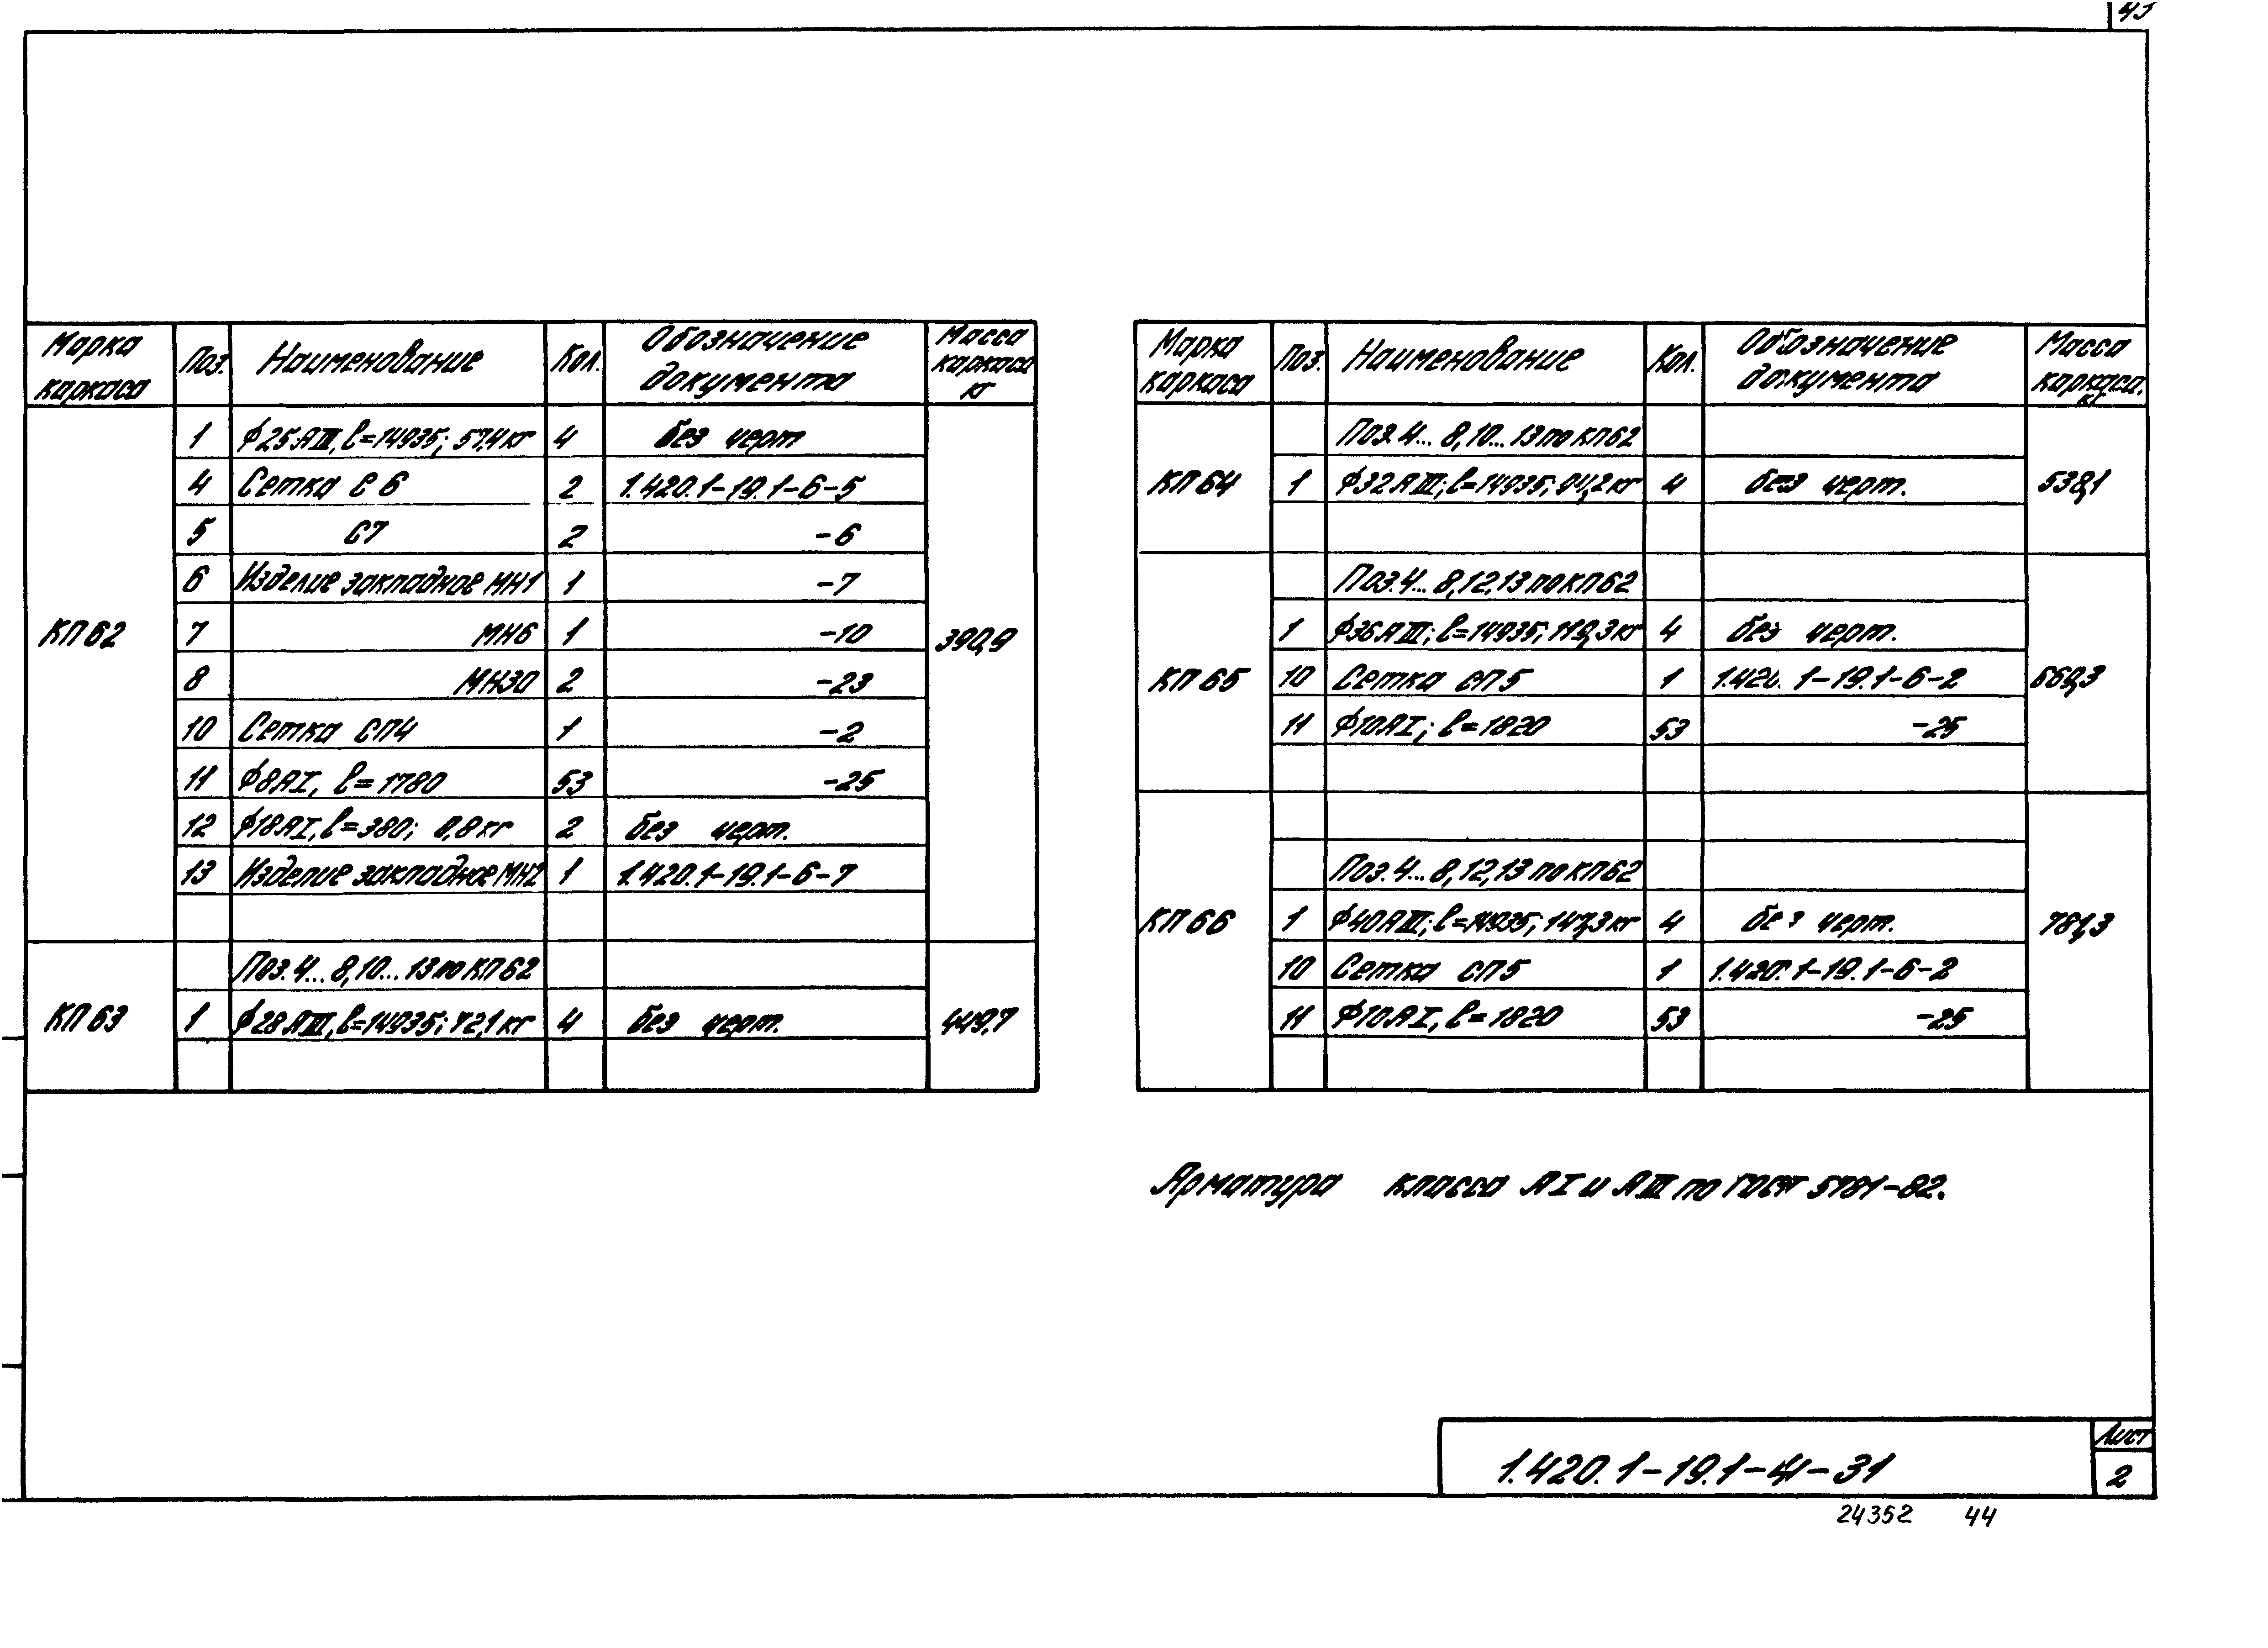 43
Марка каркаса Поз. Наименование Кол. Обозначение документа Масса каркаса кг
КП62 390,9
1 ф25АIII, ℓ=14935; 57,4кг 4 без черт
4 Сетка С6 2 1.420.1-19.1-6-5
5 С7 2 -6
6 Изделие закладное МН1 1 -7
7 МН6 1 -10
8 МН30 2 -23
10 Сетка СП4 1 -2
11 ф8АI, ℓ=1780 53 -25
12 ф18АI, ℓ=380; 0,8кг 2 без черт.
13 Изделие закладное МН2 1 1.420.1-19.1-6-7
Поз. 4... 8,10... 13 по КП62
КП63 1 ф28АIII, ℓ=14935; 72,1кг 4 без черт. 449,7
Марка каркаса Поз. Наименование Кол. Обозначение документа Масса каркаса, кг
Поз. 4... 8,10... 13 по КП62
КП64 1 ф32АIII; ℓ=14935; 94,2кг 4 без черт. 538,1
Поз. 4... 8,12,13 по КП62
1 ф36АIII; ℓ=14935; 119,3кг 4 без черт.
КП65 10 Сетка СП5 1 1.420.1-19.1-6-2 669,3
11 ф10АI; ℓ=1820 53 -25
Поз. 4... 8,12,13 по КП62
КП66 1 ф40АIII; ℓ=14935; 147,3кг 4 без черт. 781,3
10 Сетка СП5 1 1.420.1-19.1-6-2
11 ф10АI, ℓ=1820 53 -25
Арматура класса АI и АIII по ГОСТ 5781-82.
1.420.1-19.1-4-31
Лист
2
24352 44